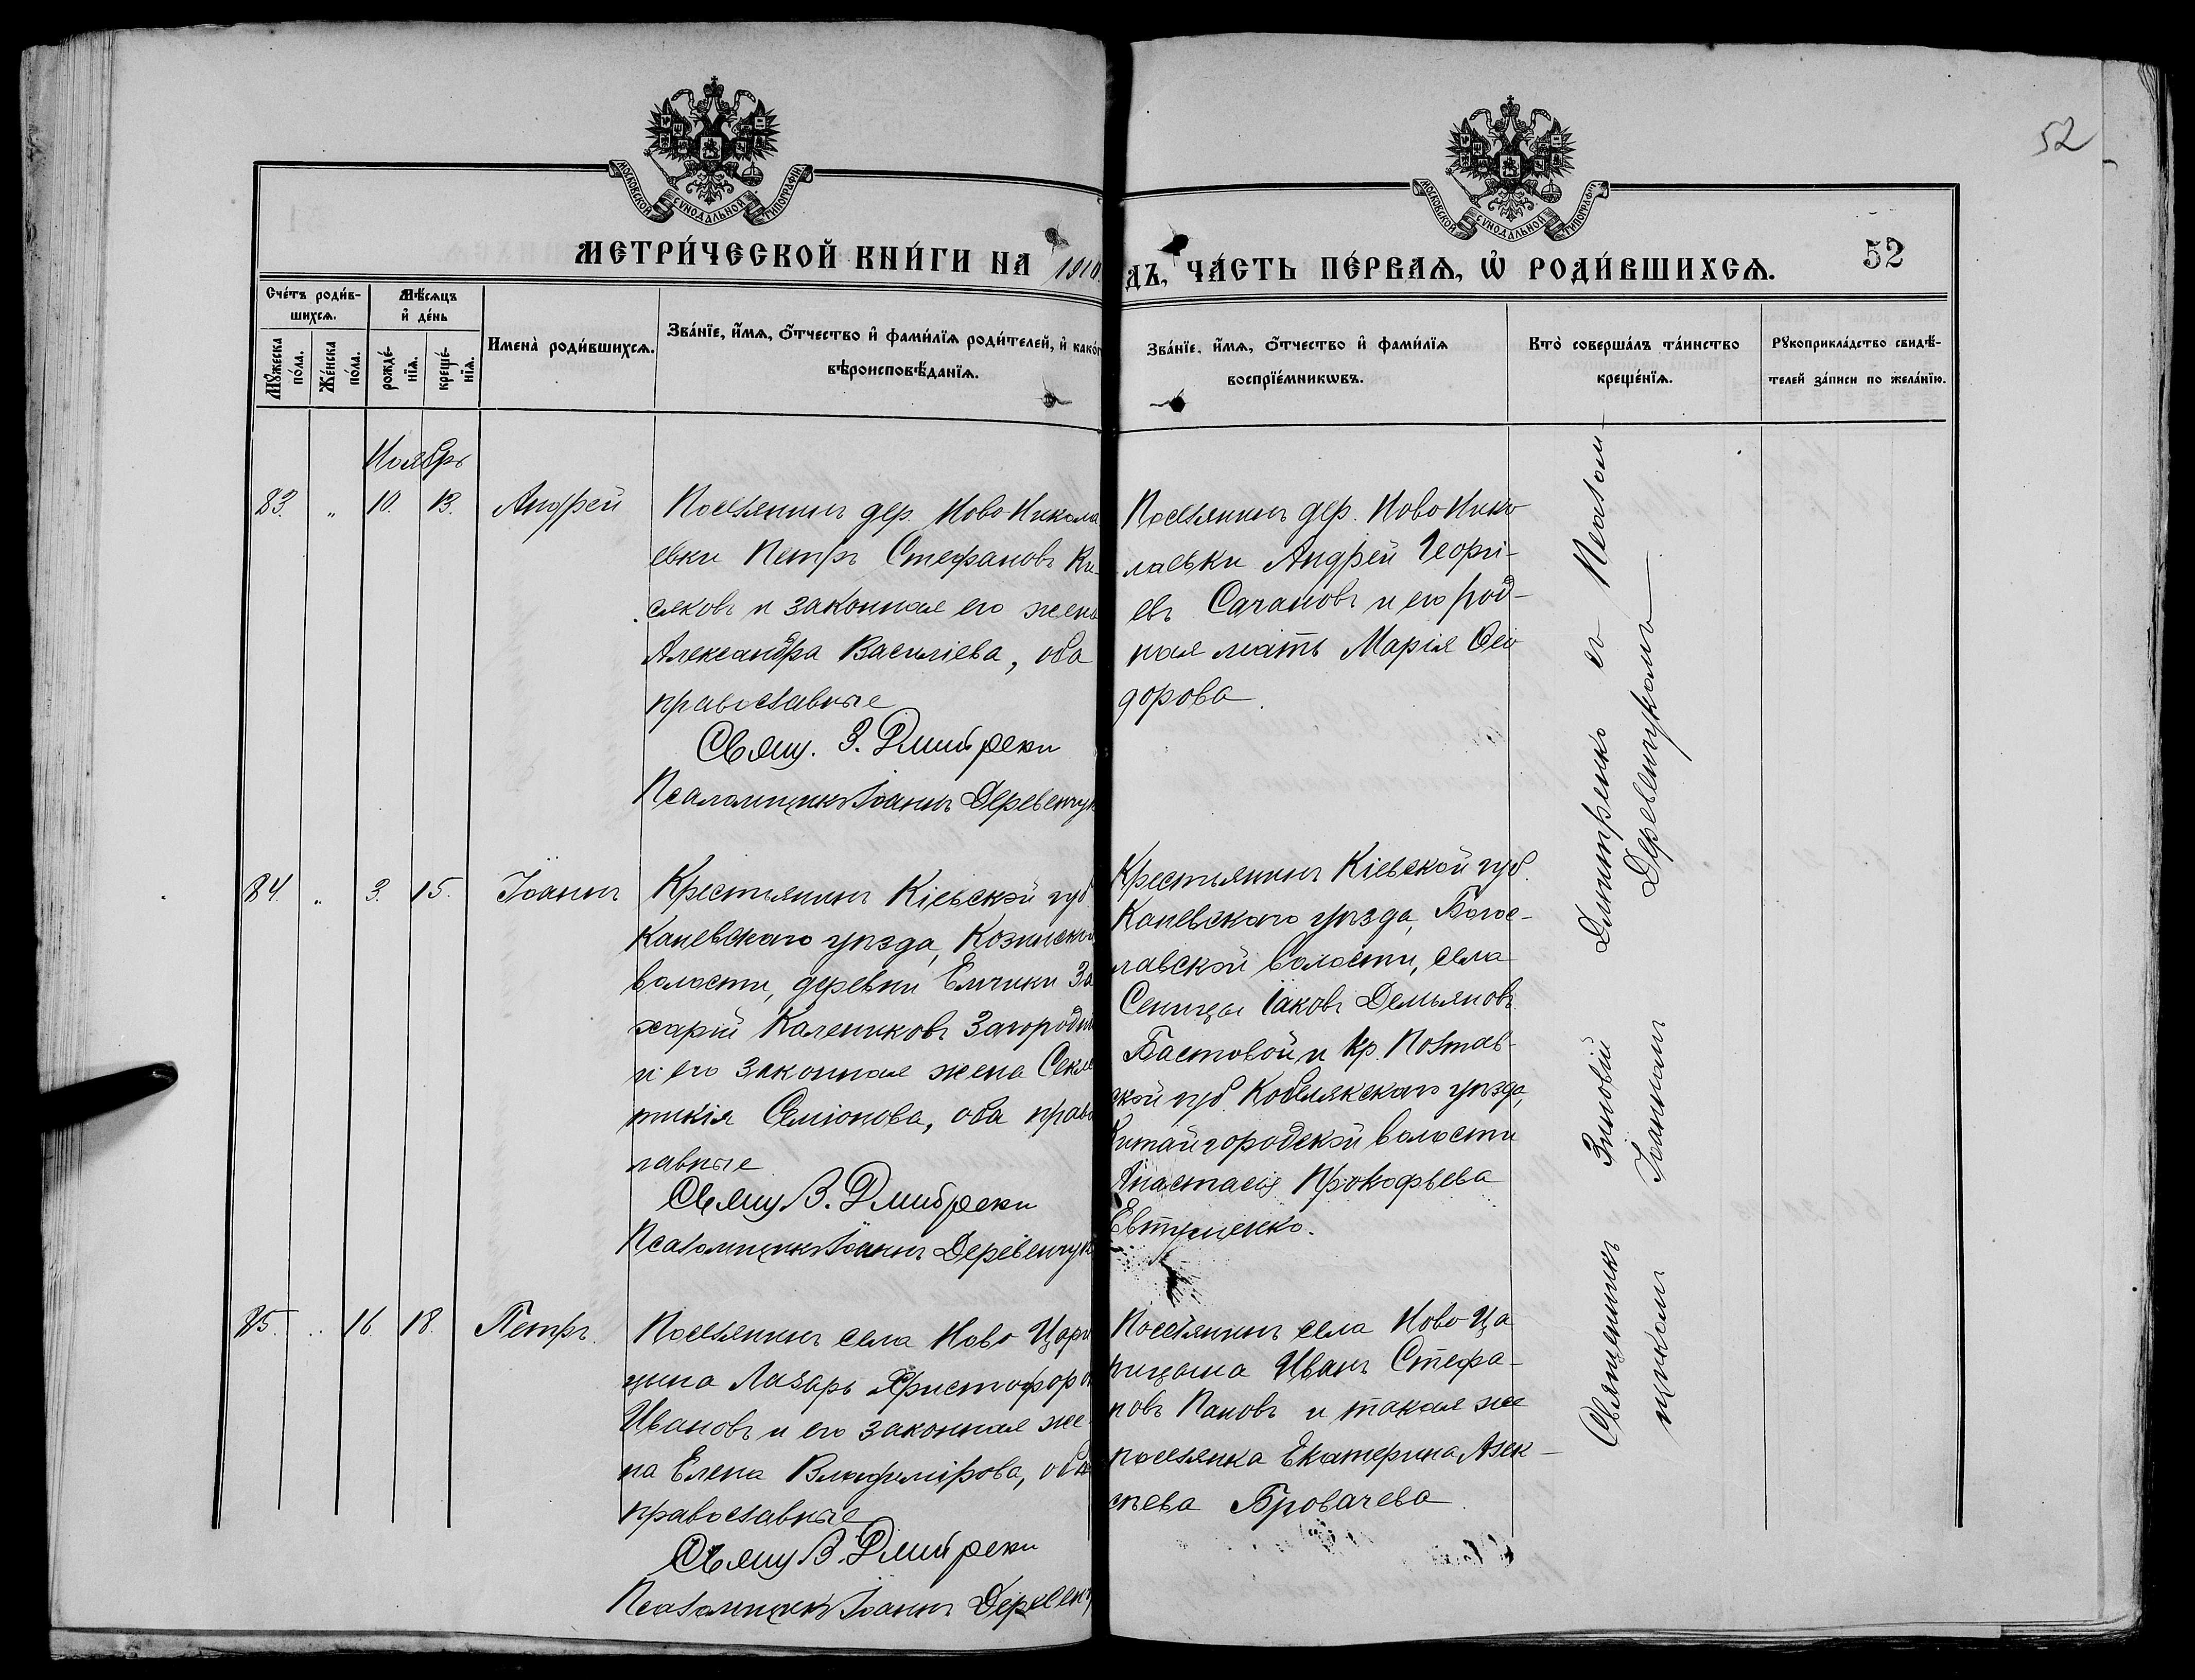 52
МОСКОВСКОЙ СѴНОДАЛЬНОЙ ТИПОГРАФІИ
МОСКОВСКОЙ СѴНОДАЛЬНОЙ ТИПОГРАФІИ
МЕТРИ́ЧЕСКОЙ КНИ́ГИ НА 1910
ДЪ, ЧА́СТЬ ПЕ́РВАѦ, Ѡ РОДИ́ВШИХСѦ.
52
Счéтъ роди́в-
шихсѧ.
Мꙋ́жеска
по́ла.
Же́нска
по́ла.
Мѣ́сѧцъ
и҆ де́нь
рожде́-
нїѧ.
креще́-
нїѧ.
Имена̀ роди́вшихсѧ.
Зва́нїе, и҆́мѧ, ѻ҆́тчество и҆ фами́лїѧ роди́телей, и҆ како́г
вѣроисповѣ́данїѧ.
Зва́нїе, и҆́мѧ, ѻ҆́тчество и҆ фами́лїѧ
воспрїе́мникѡвъ.
Кто̀ соверша́лъ та́инство
креще́нїѧ.
Рꙋкоприкла́дство свидѣ́-
телей за́писи по жела́нїю.
Ноябрь
83. " 10. 13. Андрей
Поселянинъ дер. Ново Никола
евки Петръ Стефановъ Ки-
сяковъ и законная его жена
Александра Василіева, оба
православные
Свящ. З. Дмитренк
Псаломщикъ Іоаннъ Деревенчук
Поселянинъ дер. Ново Нико
лаевки Андрей Георгі-
евъ Сачановъ и его род-
ная мать Марія Ѳео
дорова.
84. " 3. 15. Іоаннъ
Крестьянинъ Кіевской губ
Каневскаго уѣзда, Козинской
волости, деревни Емчики За
харій Калениковъ Загородн
и его законная жена Секле
тикія Семіонова, оба право
лавные
Свящ З. Дмитренк
Псаломщикъ Іоаннъ Деревенчук
Крестьянинъ Кіевской губ.
Каневскаго уѣзда, Богос-
лавской волости, села
Сеницы Іаковъ Демьяновъ
Бастовой и кр. Полтав-
ской губ. Кобелякскаго уѣзда,
Китайгородской волости
Анастасія Прокофьева
Евтушенко.
85. " 16. 18. Петръ.
Поселянинъ села Ново Цари
цына Лазарь Христофоров
Ивановъ и его законная же-
на Елена Владимірова, оба
православные
Свящ З. Дмитренк
Псаломщикъ Іоаннъ Деревенч
Поселянинъ села Ново Ца
рицына Иванъ Стефа-
новъ Пановъ и такая же
поселянка Екатерина Алек-
сѣева Бровачева.
Священникъ Зиновій Дмитренко съ Псалом-
щикомъ Іоанномъ Деревенчукомъ